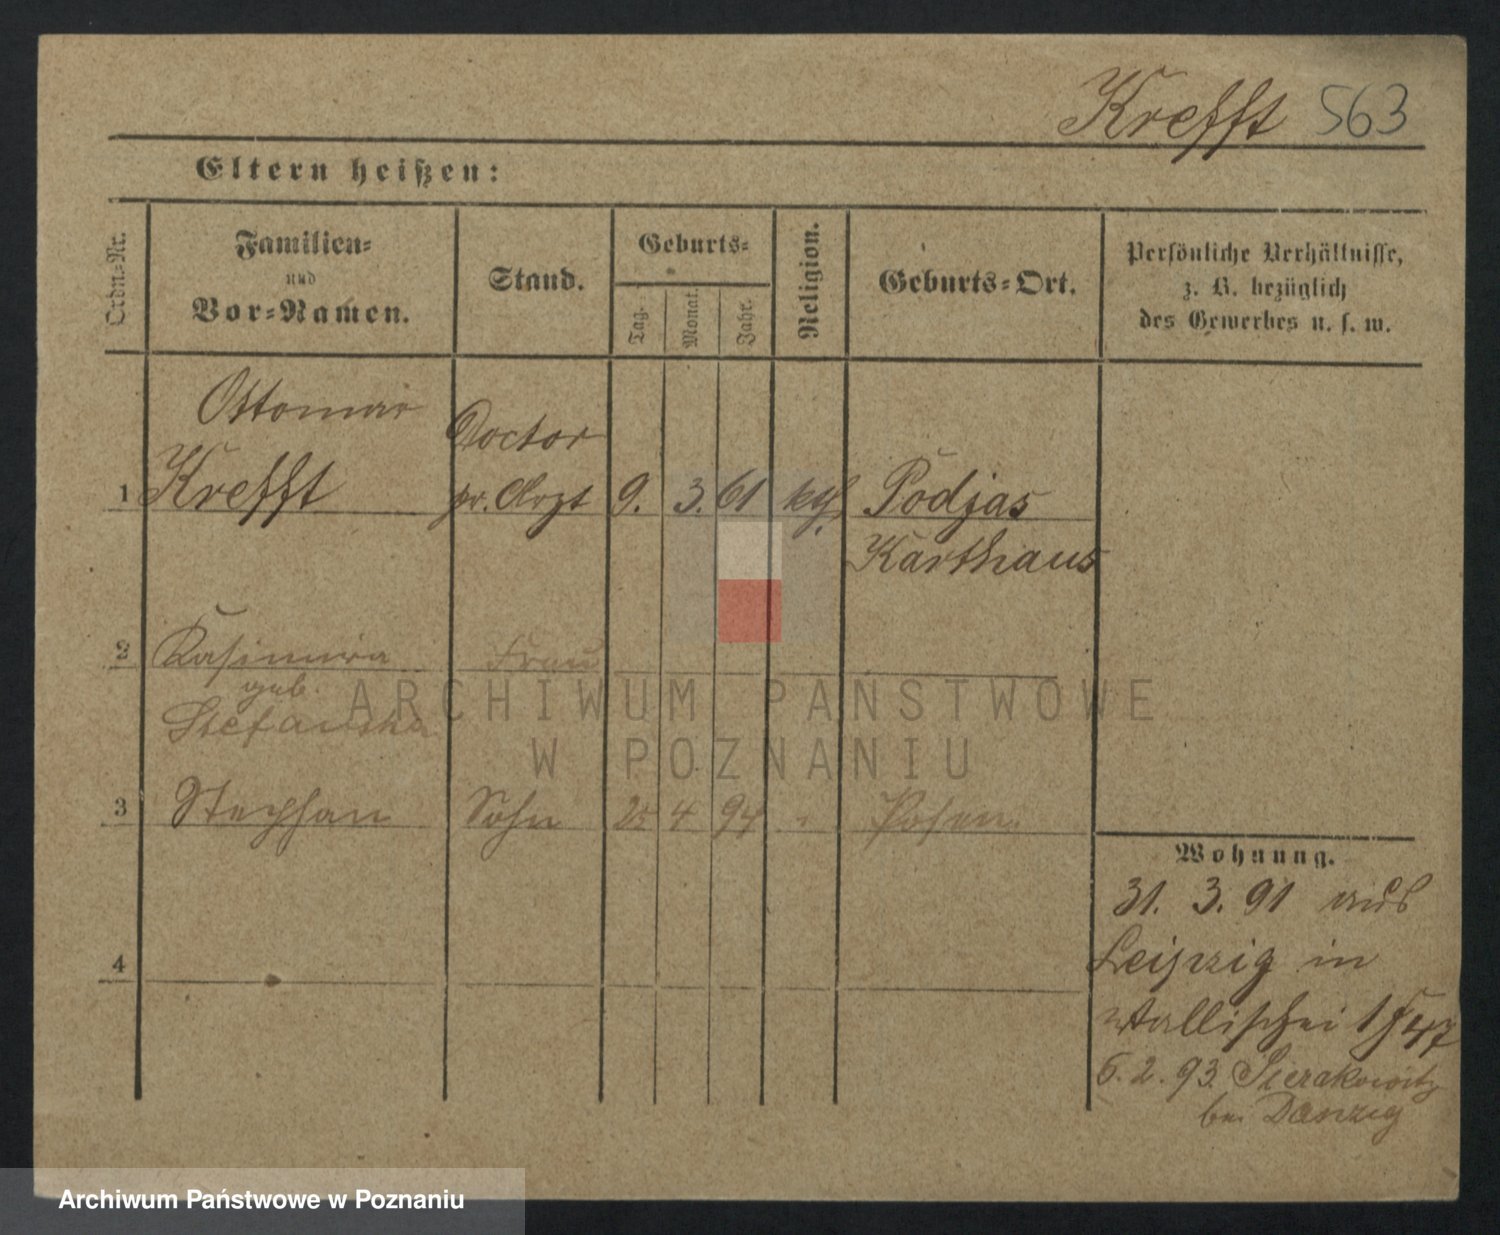 Krefft 563
Eltern heißen:
Ordn.-Nr.
Familien-
und
Vor-Namen.
Stand.
Geburts-
Tag.
Monat.
Jahr.
Religion.
Geburts-Ort.
Persönliche Verhältnisse,
z. B. bezüglich
des Gewerbes u. s. w.
Ottomar Doctor
1 Krefft pr. Arzt 9. 3. 61 kth. Podjas
Karthaus
2 Kasimira Frau
geb.
Stefanska
3 Stephan Sohn 25 4 94 Posen
Wohnung.
31. 3. 91 aus
4 Leipzig in
Wallischei
6. 2. 93. Sierakowitz
bei Danzig
ARCHIWUM PAŃSTWOWE
W POZNANIU
Archiwum Państwowe w Poznaniu